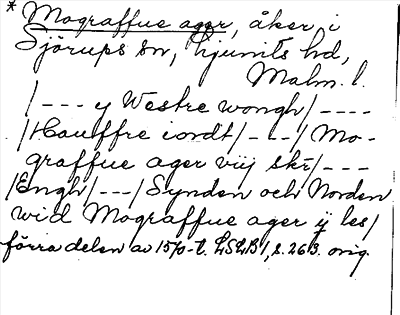 * Mograffue ager, åker, i
Sjörups sn, Ljunits hd,
Malm. l.
/--- y Westre wongh/----
/Hauffre iordt/---/Mo-
graffue ager viij skr/---
/Engh/---/Synden och Norden
wid Mograffue ager ij les/
förra delen av 1570-t. LSLB 1, s. 263. orig.